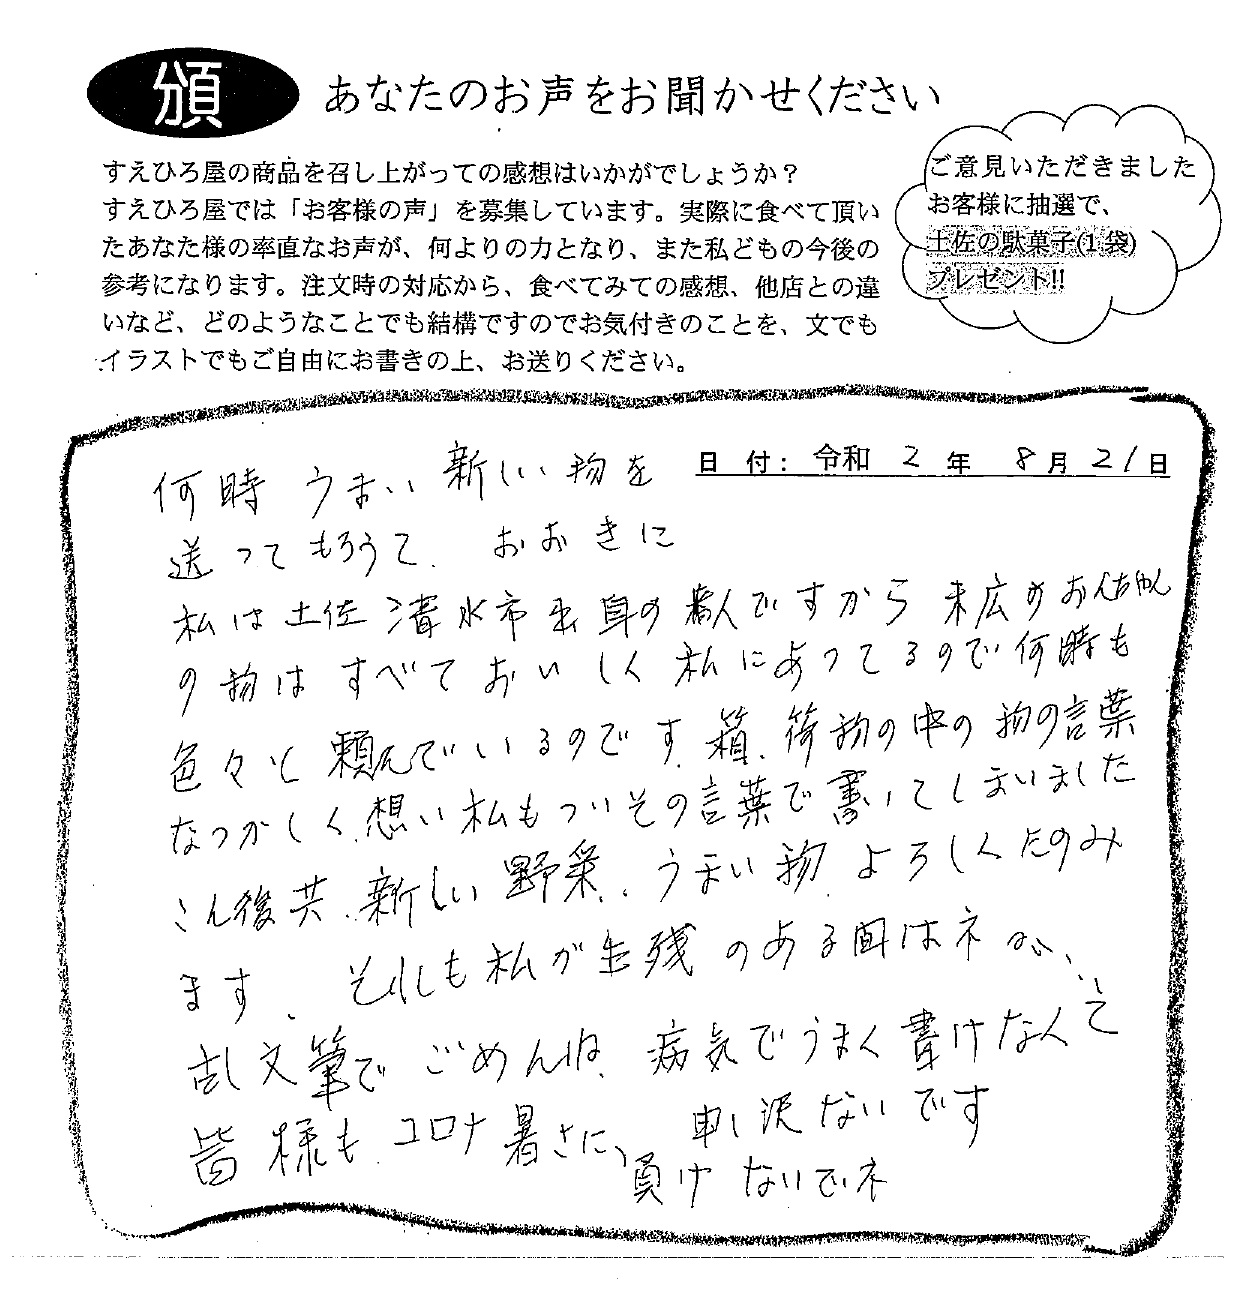 頒
あなたのお声をお聞かせください
すえひろ屋の商品を召し上がっての感想はいかがでしょうか？
すえひろ屋では「お客様の声」を募集しています。実際に食べて頂い
たあなた様の率直なお声が、何よりの力となり、また私どもの今後の
参考になります。注文時の対応から、食べてみての感想、他店との違
いなど、どのようなことでも結構ですのでお気付きのことを、文でも
イラストでもご自由にお書きの上、お送りください。
ご意見いただきました
お客様に抽選で、
土佐の駄菓子(1袋)
プレゼント!!
日 付： 令和 2 年 8 月 21 日
何時 うまい 新しい 物を
送ってもろうて、おおきに
私は土佐清水市出身のですから 末広のおんちゃん
の物は すべて おいしく 私にあってるので 何時も
色々と頼んでいるのです、箱、荷物の中の物の言葉
なつかしく、想い私もついその言葉で書いてしまいました
こん後共、新しい野菜、うまい物、よろしくたのみ
ます、それしも私が生残のある間はネ
乱文筆で ごめんね、病気でうまく書けなんで
申し訳ないです
皆様も、コロナ暑さに、負けないでネ